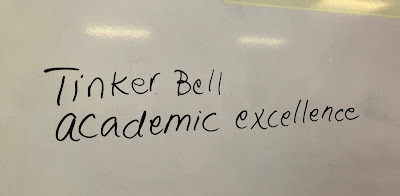 Tinker Bell
academic excellence